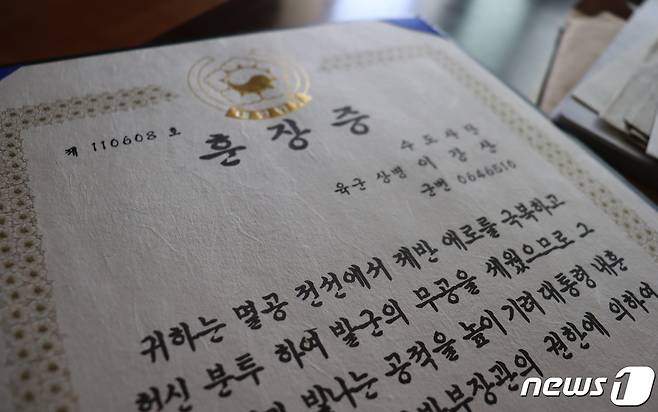 제 110608 호
훈장증
수도사단
육군 상병 이강산
군번 0646510
귀하는 멸공 전선에서 제반 애로를 극복하고
헌신 분투 하여 발군의 무공을 세웠으므로 그
빛나는 공적을 높이 기려 대통령 내훈
권한에 의하여
news1